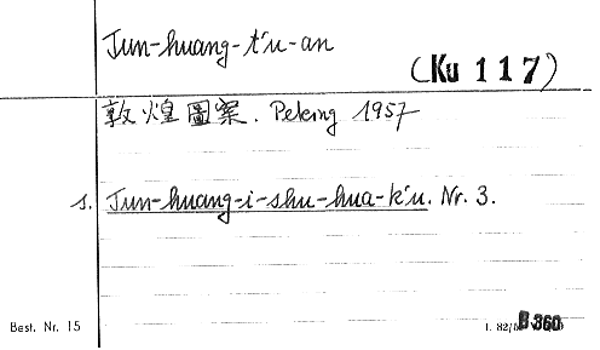 Tun-huang-t'u-an
(Ku 117)
敦煌圖案. Peking 1957
s. Tun-huang-i-shu-hua-k'u. Nr. 3.
Best. Nr. 15
B 360